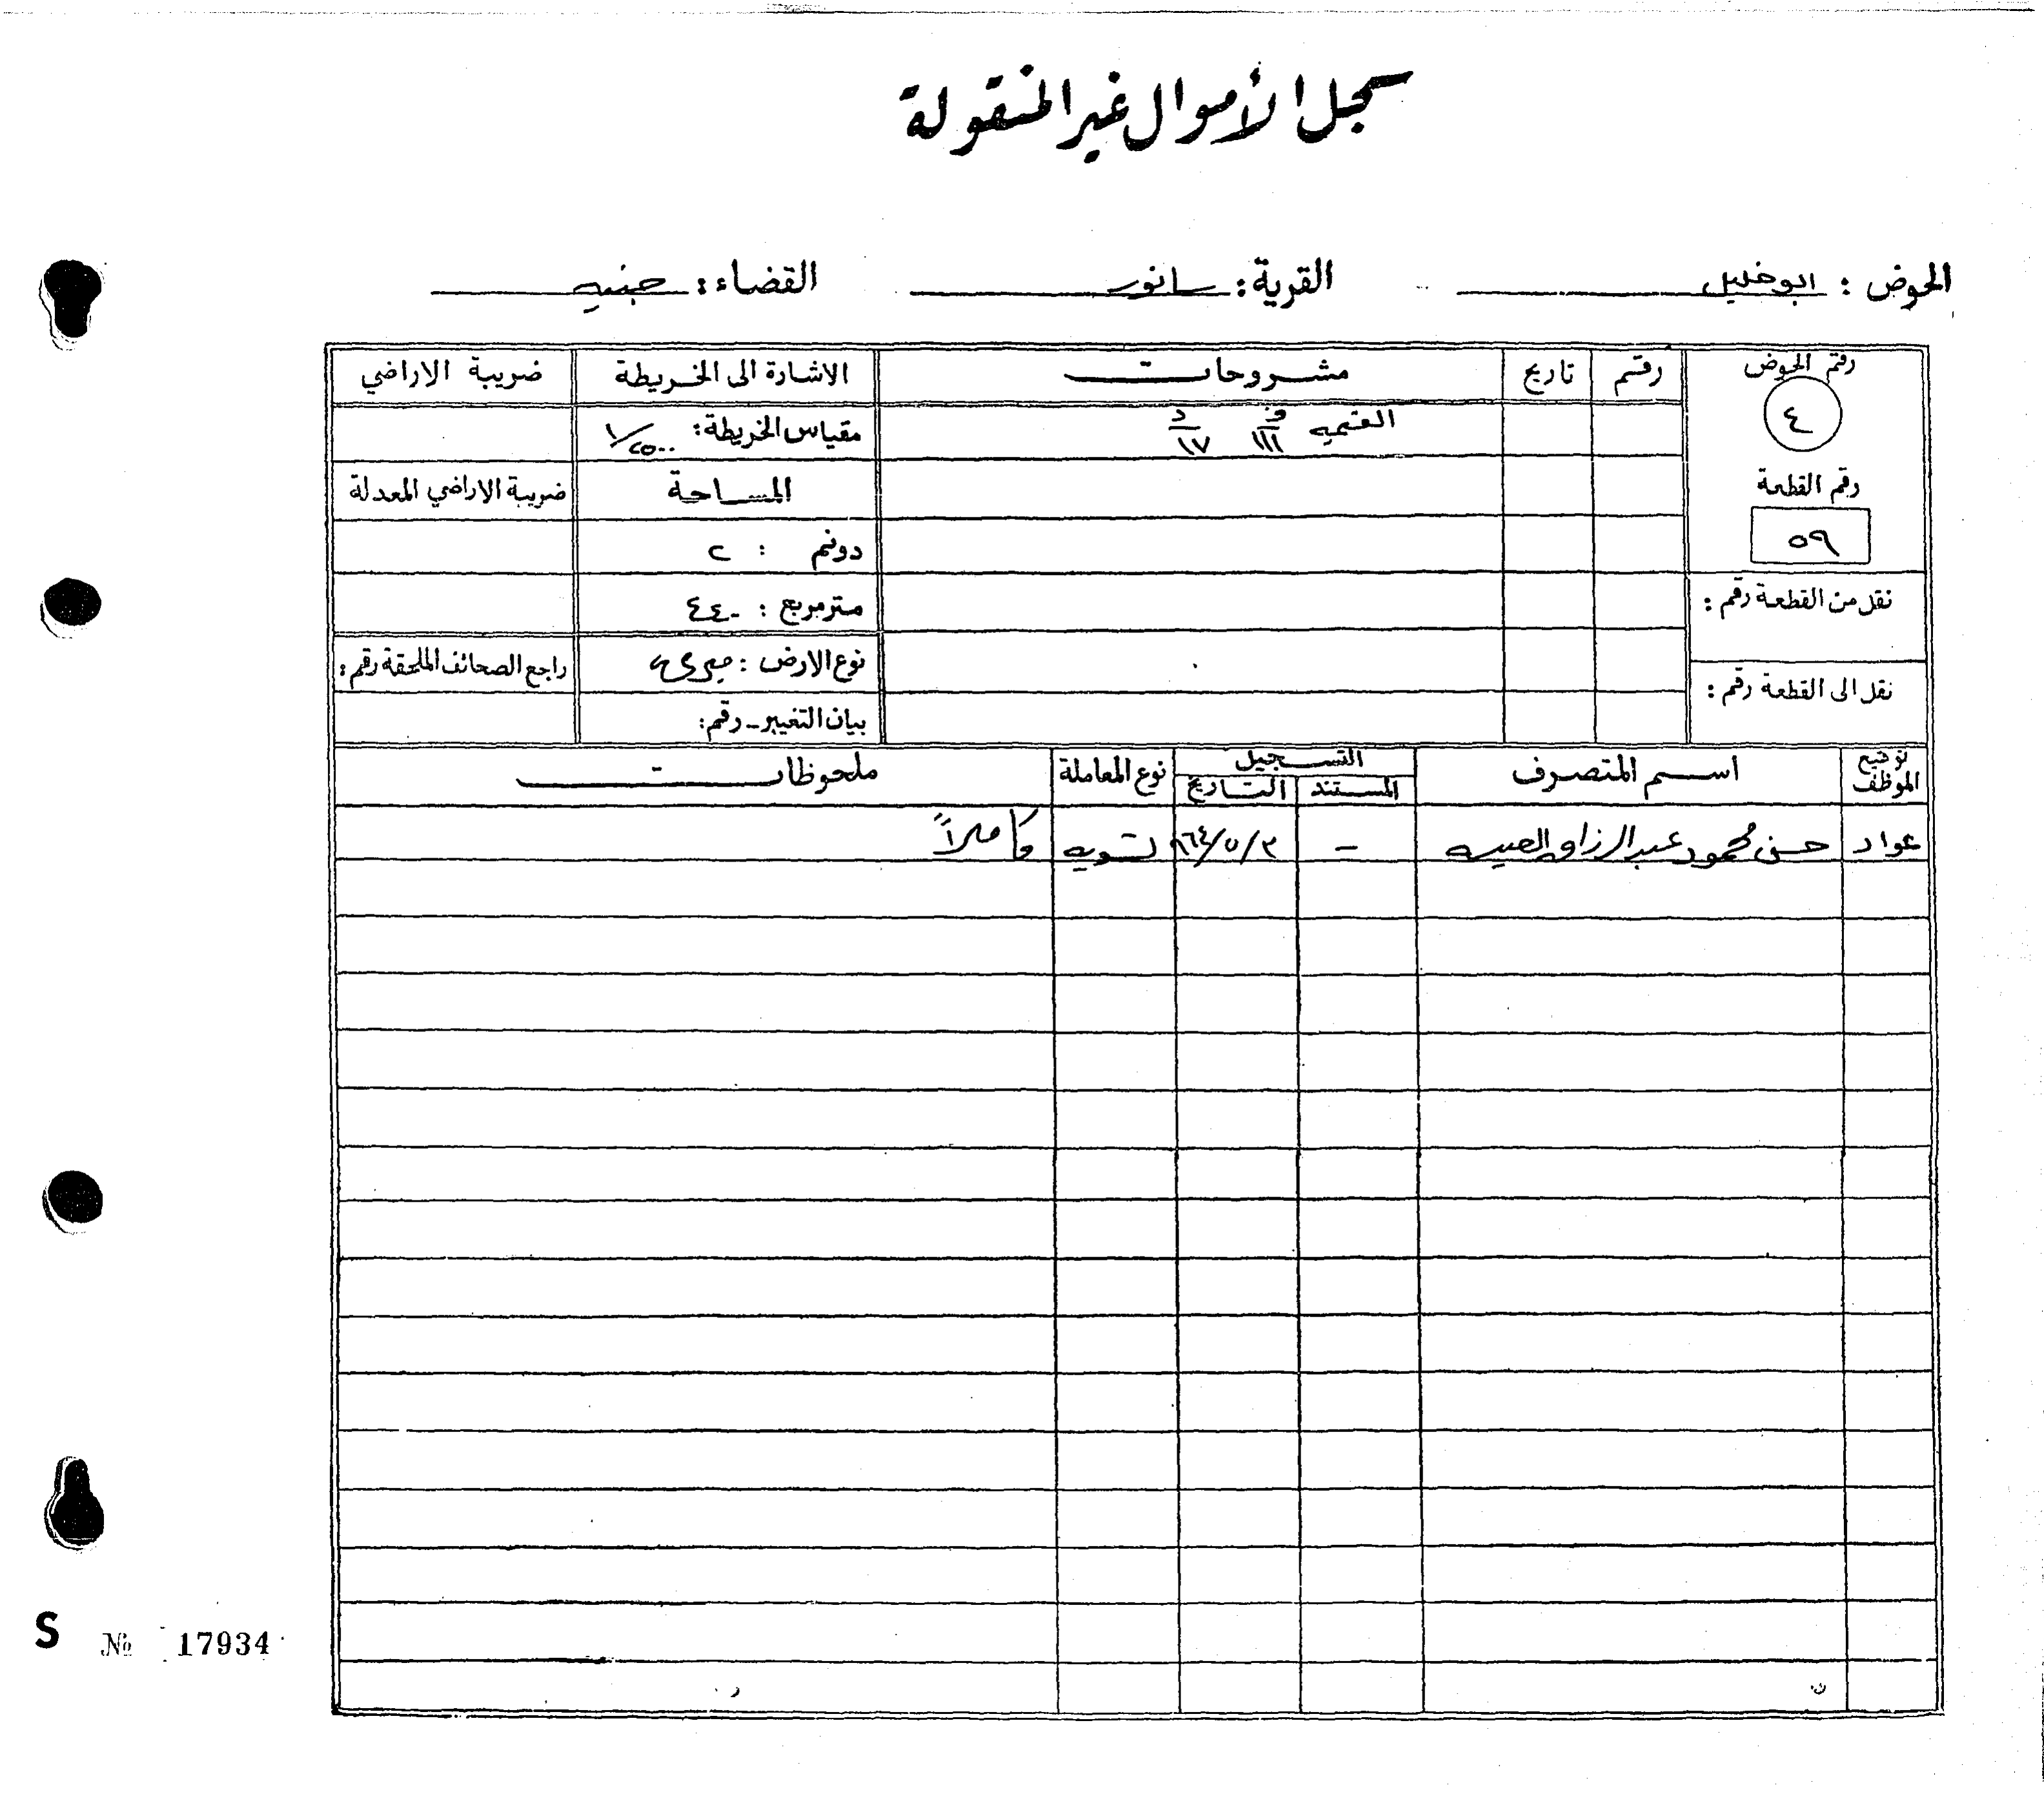 سجل الأموال غير المنقولة
الحوض : ابو خليل القرية : سانور القضاء : جنين
رقم الحوض رقم تاريخ مشروحات الاشارة الى الخريطة ضريبة الاراضي
٤ القيمة ف ١١١ د ١٧ مقياس الخريطة : ١/٢٥٠٠
رقم القطعة المساحة ضريبة الاراضي المعدلة
٥٩ دونم : ٢
نقل من القطعة رقم : متر مربع : ٤٤٠
نوع الارض : ميري راجع الصحائف الملحقة رقم :
نقل الى القطعة رقم : بيان التغيير - رقم :
توقيع الموظف اسم المتصرف التسجيل نوع المعاملة ملحوظات
المستند التاريخ
عواد حسن محمود عبد الرزاق - ٩٦٤/٥/٣ تسوية كاملاً
S № 17934